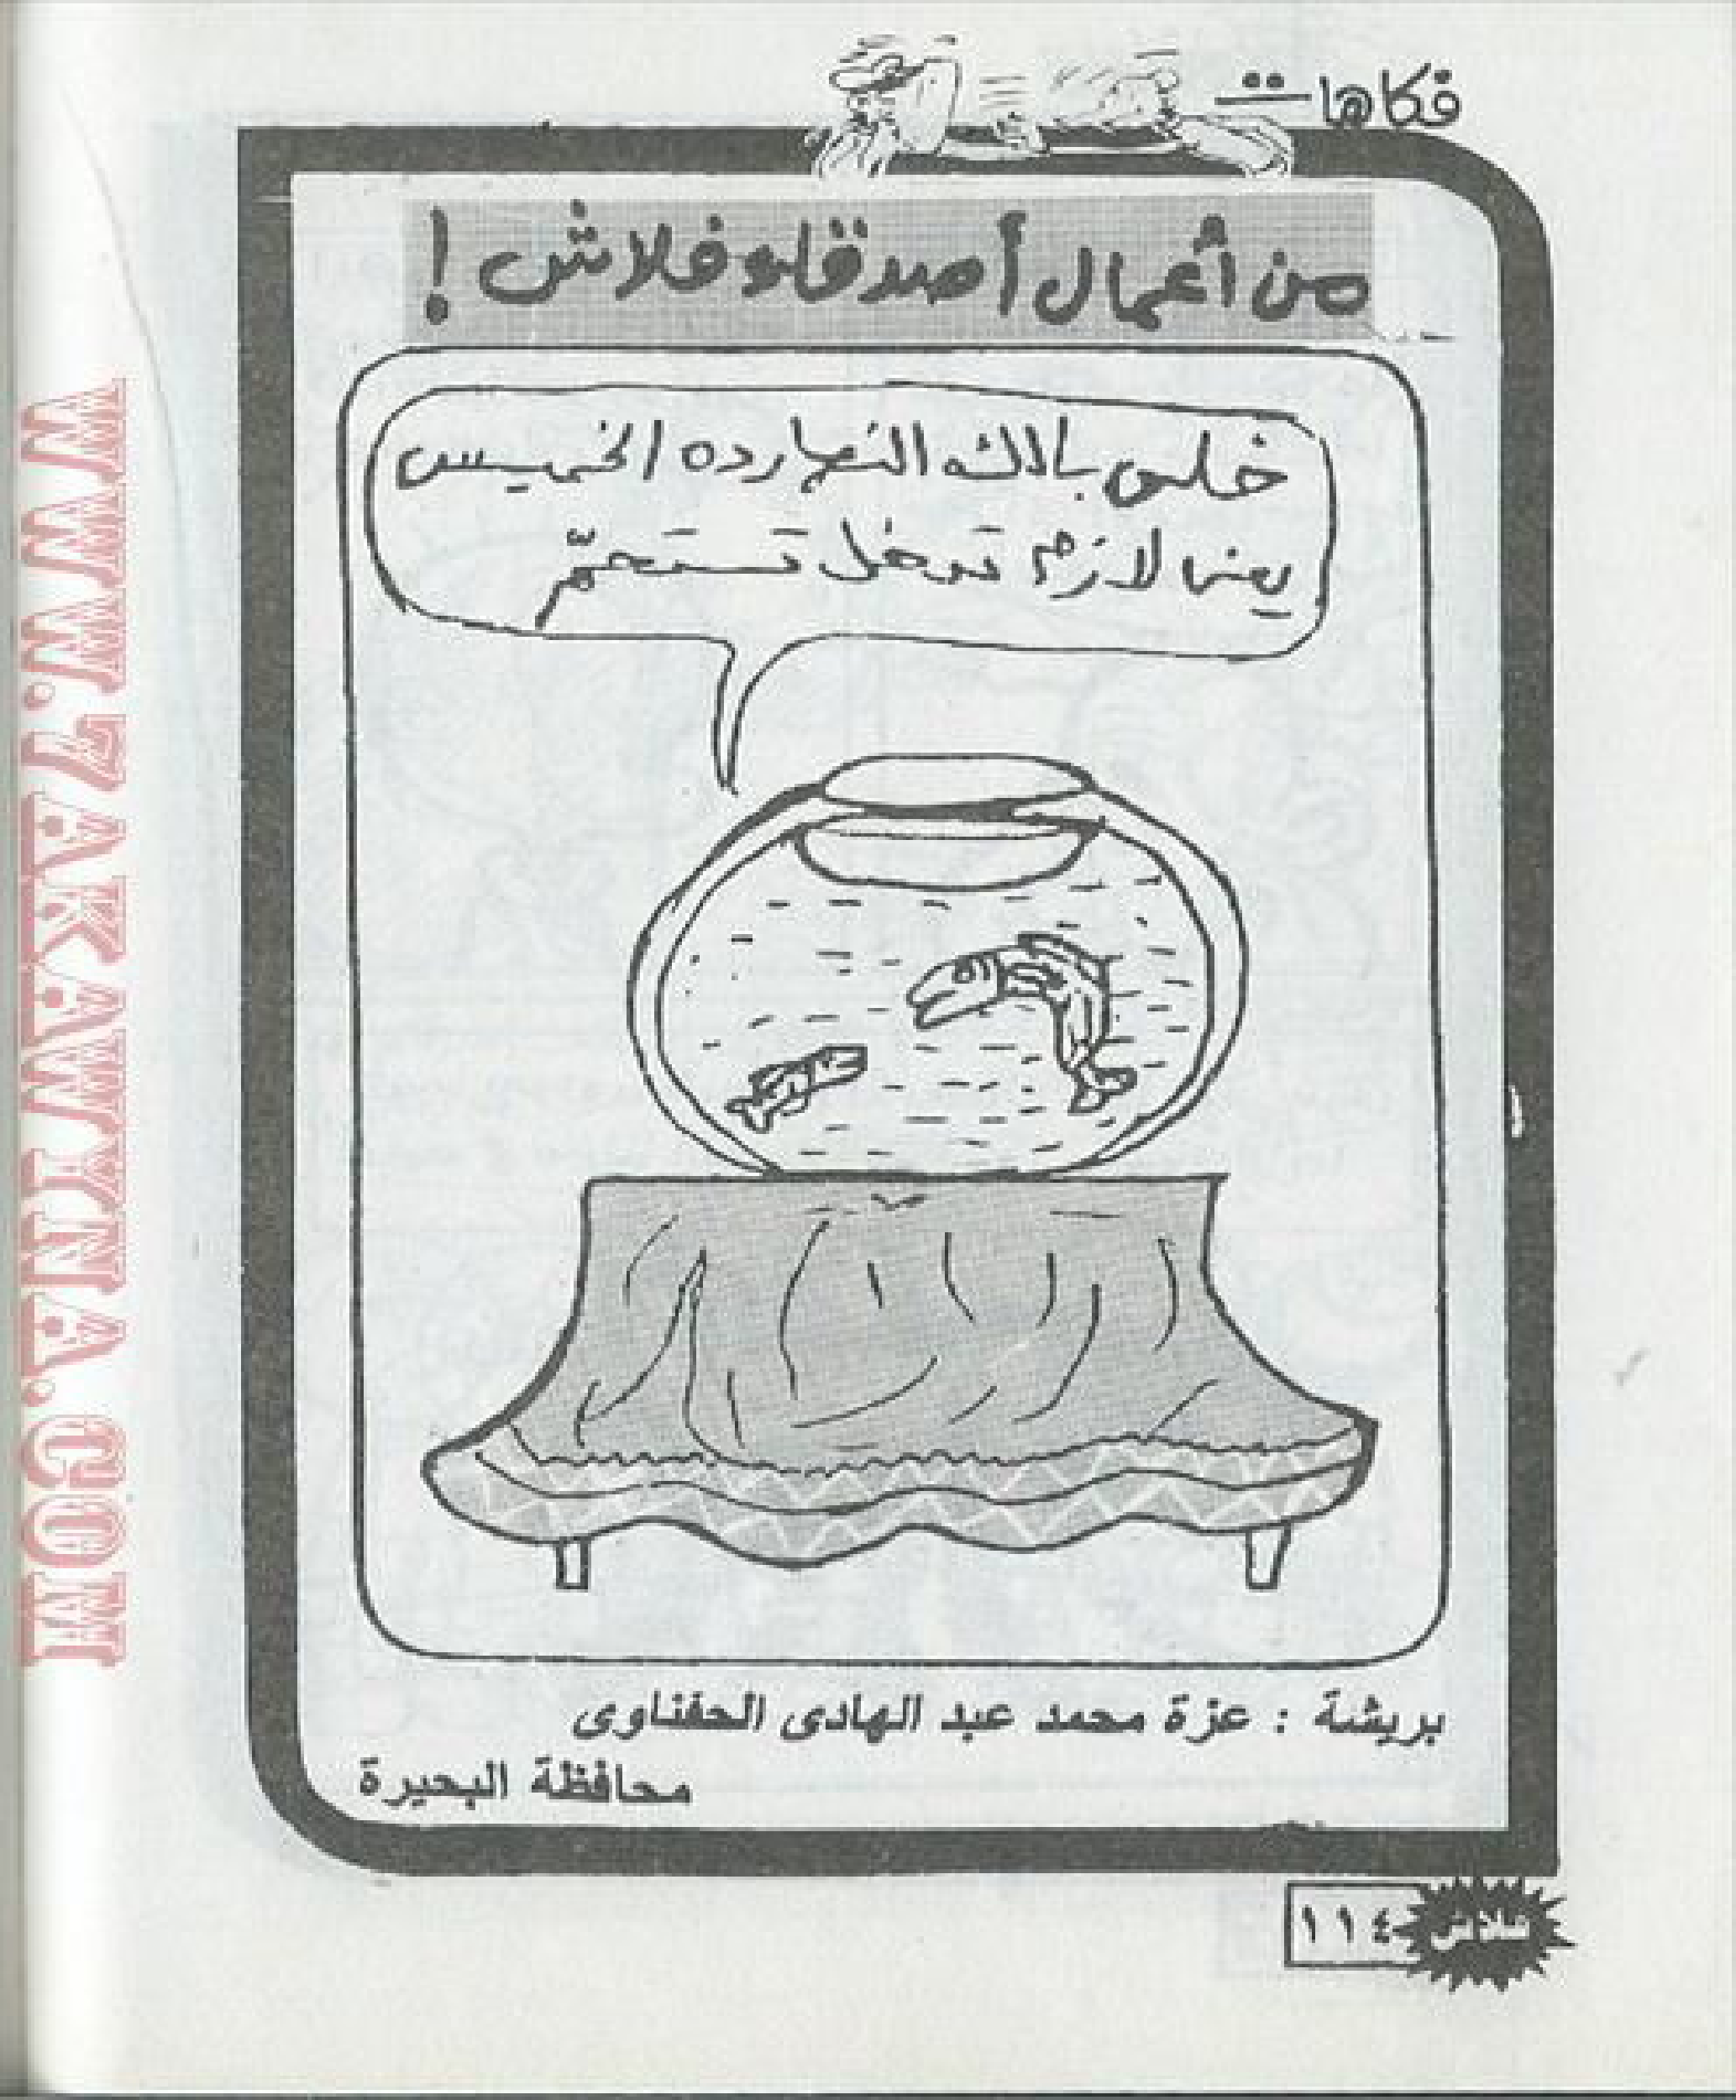 فكاهات
من أعمال أصدقاء فلاش !
خلى بالك النهارده الخميس
يعنى لازم تدخل تستحمّى
بريشة : عزة محمد عبد الهادى الحفناوى
محافظة البحيرة
فلاش ١١٤
WWW.7AKAWINA.COM